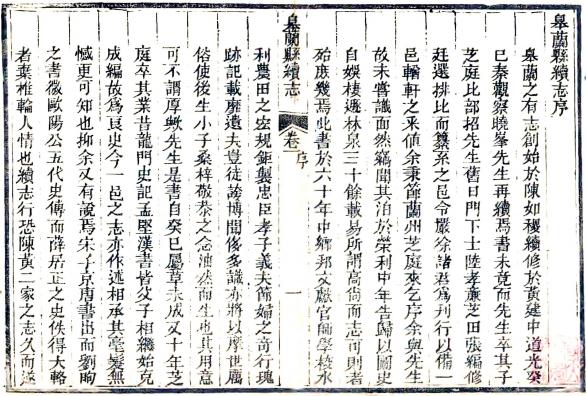 皋蘭縣續志序
皋蘭之有志創始於陳如稷續修於黃建中道光癸
巳秦觀察曉峯先生再續焉書未竟而先生卒其子
芝庭比部招先生舊日門下士陸孝廉芝田張編修
廷選排比而纂系之邑令嚴徐諸君爲刊行以備一
邑輶軒之采値余秉節蘭州芝庭來乞序余與先生
故未嘗識面然竊聞其泊於榮利中年告歸以圖史
自娛棲遯林泉三十餘載易所謂高尚而志可則者
殆庶幾焉此書於六十年中鄉邦文獻官師學校水
利農田之宏規鉅製忠臣孝子義夫節婦之奇行瑰
跡記載靡遺夫豈徒誇博聞侈多識亦將以摩世厲
俗使後生小子桑梓敬恭之念油然而生也其用意
可不謂厚歟先生是書自癸巳屬草未成又十年芝
庭卒其業昔龍門史記孟堅漢書皆父子相繼始克
成編故爲良史今一邑之志亦作述相承其毫髮無
憾更可知也抑余又有說焉宋子京唐書出而劉昫
之書微歐陽公五代史傳而薛居正之史佚得大輅
者棄椎輪人情也續志行恐陳黃二家之志久而遂
皋蘭縣續志
卷
序
一